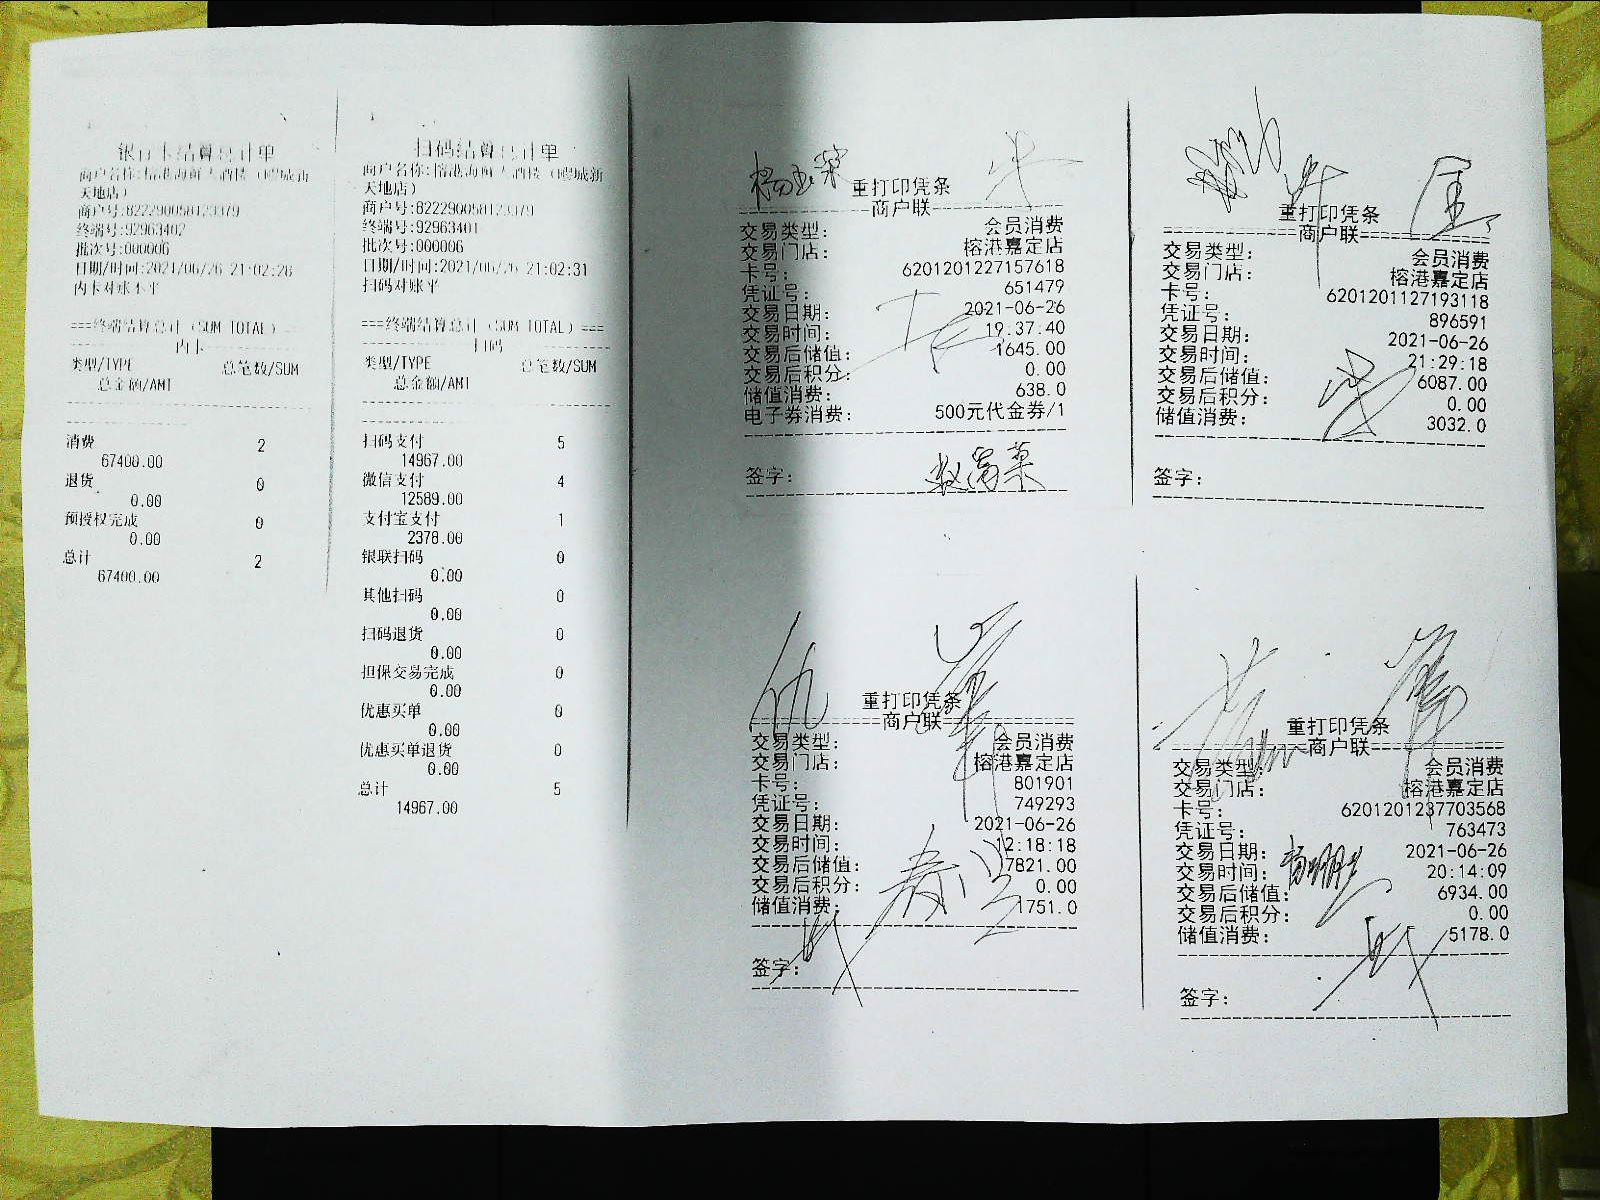 银行卡结算总计单
商户名称:榕港海鲜大酒楼（嘐城新
天地店）
终端号:92963402
批次号:000006
日期/时间:2021/06/26 21:02:26
内卡对账不平
===终端结算总计（SUM TOTAL）==
内卡
类型/TYPE 总笔数/SUM
总金额/AMT
消费 2
67400.00
退货 0
0.00
预授权完成 0
0.00
总计 2
67400.00
扫码结算总计单
商户名称:榕港海鲜大酒楼（嘐城新
天地店）
终端号:92963401
批次号:000006
日期/时间:2021/06/26 21:02:31
扫码对账平
===终端结算总计（SUM TOTAL）===
扫码
类型/TYPE 总笔数/SUM
总金额/AMT
扫码支付 5
14967.00
微信支付 4
12589.00
支付宝支付 1
2378.00
银联扫码 0
0.00
其他扫码 0
0.00
扫码退货 0
0.00
担保交易完成 0
0.00
优惠买单 0
0.00
优惠买单退货 0
0.00
总计 5
14967.00
重打印凭条
商户联
交易类型: 会员消费
交易门店: 榕港嘉定店
卡号: 6201201227157618
凭证号: 651479
交易日期: 2021-06-26
交易时间: 19:37:40
交易后储值: 1645.00
交易后积分: 0.00
储值消费: 638.0
电子券消费: 500元代金券/1
签字:
重打印凭条
商户联
交易类型: 会员消费
交易门店: 榕港嘉定店
卡号: 6201201127193118
凭证号: 896591
交易日期: 2021-06-26
交易时间: 21:29:18
交易后储值: 6087.00
交易后积分: 0.00
储值消费: 3032.0
签字:
重打印凭条
商户联
交易类型: 会员消费
交易门店: 榕港嘉定店
卡号: 801901
凭证号: 749293
交易日期: 2021-06-26
交易时间: 12:18:18
交易后储值: 7821.00
交易后积分: 0.00
储值消费: 1751.0
签字:
重打印凭条
商户联
交易类型: 会员消费
交易门店: 榕港嘉定店
卡号: 6201201237703568
凭证号: 763473
交易日期: 2021-06-26
交易时间: 20:14:09
交易后储值: 6934.00
交易后积分: 0.00
储值消费: 5178.0
签字: